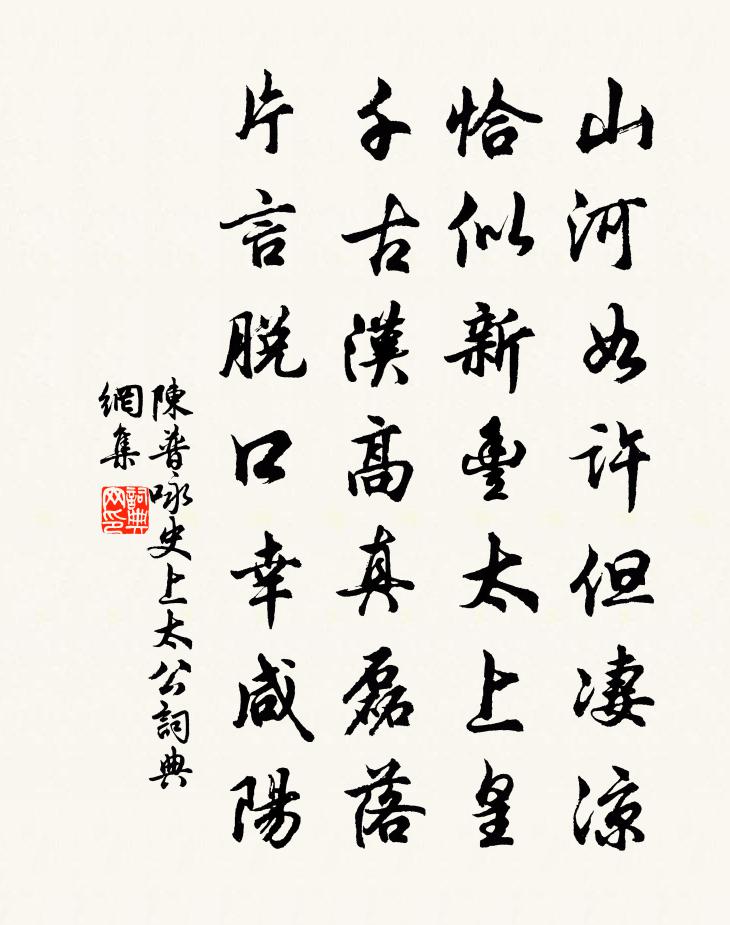 山河如許但淒涼
恰似新豐太上皇
千古漢高真磊落
片言脫口幸咸陽
陳普咏史上太公詞典
網集
詞典
网印